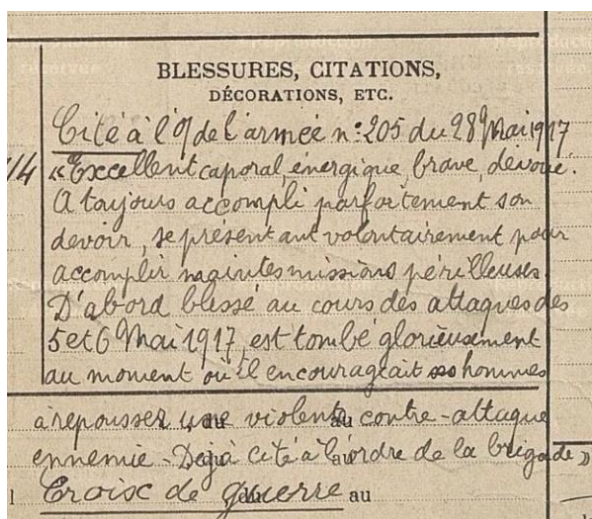 BLESSURES, CITATIONS,
DÉCORATIONS, ETC.
Cité à l'O/ de l'armée n: 205 du 28 Mai 1917
"Excellent caporal, énergique, brave, dévoué.
A toujours accompli parfaitement son
devoir, se présentant volontairement pour
accomplir maintes missions périlleuses.
D'abord blessé au cours des attaques des
5 et 6 Mai 1917, est tombé glorieusement
au moment où il encourageait ses hommes
à repousser une violente contre-attaque
ennemie - Déjà cité à l'ordre de la brigade »
Croix de guerre au